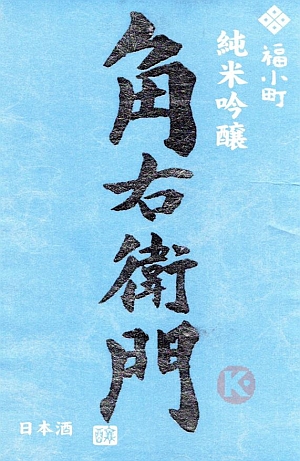 福小町
純米吟醸
角右衛門
日本酒
K